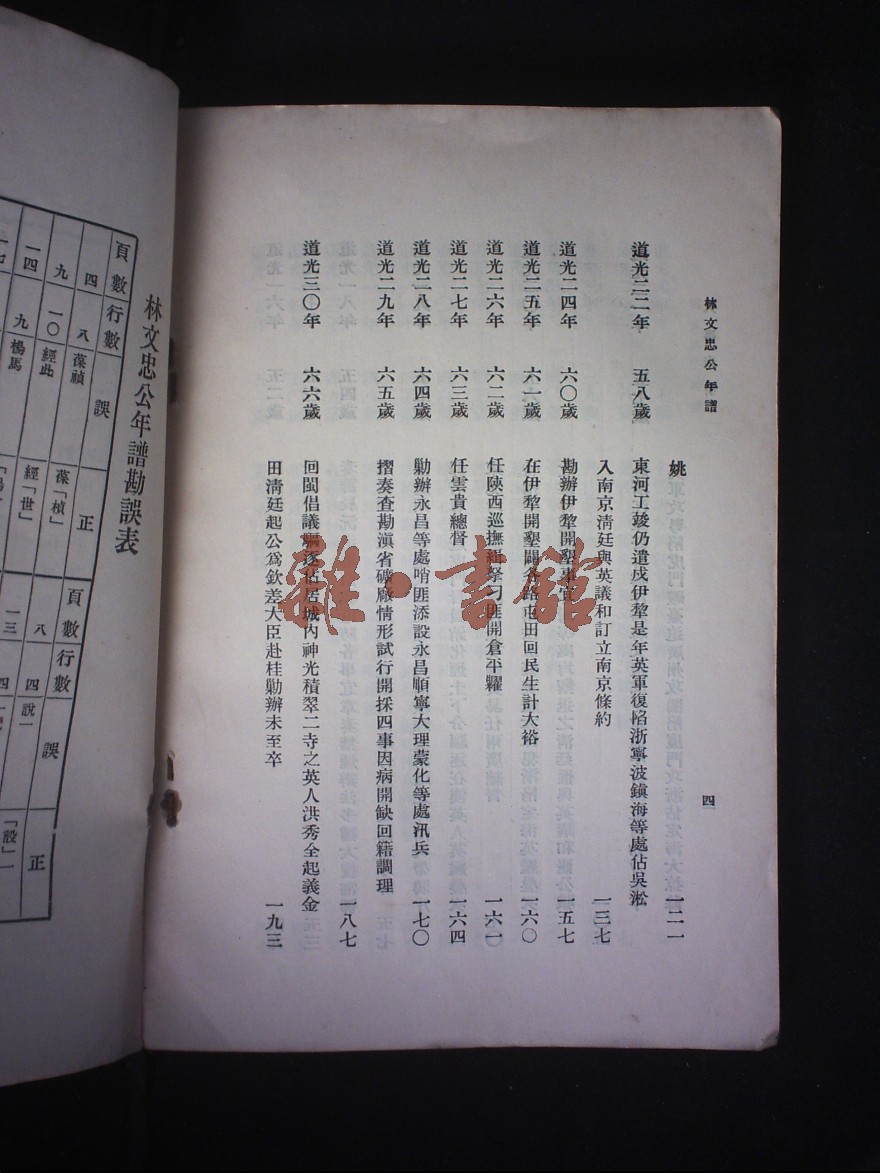 林文忠公年譜
四
姚 一二一
道光二二年 五八歲 東河工竣仍遣戍伊犂是年英軍復陷浙寧波鎮海等處佔吳淞
入南京清廷與英議和訂立南京條約 一三七
道光二四年 六〇歲 勘辦伊犂開墾事宜 一五七
道光二五年 六一歲 在伊犂開墾闢各路屯田回民生計大裕 一六〇
道光二六年 六二歲 任陝西巡撫緝拏刁匪開倉平糶 一六一
道光二七年 六三歲 任雲貴總督 一六四
道光二八年 六四歲 勦辦永昌等處哨匪添設永昌順寧大理蒙化等處汛兵 一七〇
道光二九年 六五歲 摺奏查勘滇省礦廠情形試行開採四事因病開缺回籍調理
道光三〇年 六六歲 回閩倡議驅逐佔居城內神光積翠二寺之英人洪秀全起義金 一八七
田清廷起公爲欽差大臣赴桂勦辦未至卒 一九三
雜·書館
林文忠公年譜勘誤表
頁數 行數 誤 正 頁數 行數 誤 正
四 八 葆禎 葆「楨」 八 四 說一
九 一〇 經此 經「世」 一三 四
一四 九 楊馬